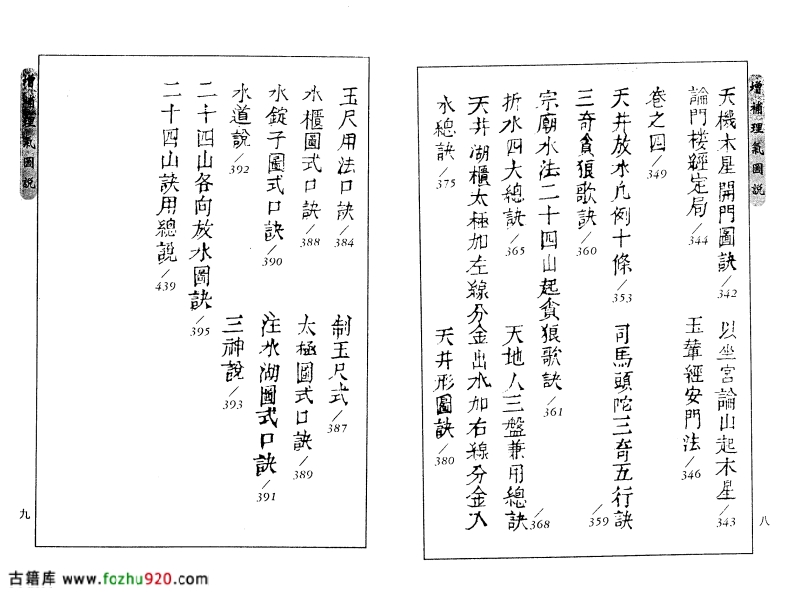 增補理氣圖說
天機木星開門圖訣/342
以坐宮論山起木星/343
論門楼經定局/344
玉輦經安門法/346
卷之四/349
天井放水凡例十條/353
司馬頭陀三奇五行訣/359
三奇貪狼歌訣/360
宗廟水法二十四山起貪狼歌訣/361
折水四大總訣/365
天地人三盤兼用總訣/368
天井湖櫃太極加左線分金出水加右線分金入
水總訣/375
天井形圖訣/380
八
增補理氣圖說
玉尺用法口訣/384
制玉尺式/387
水櫃圖式口訣/388
太極圖式口訣/389
水錠子圖式口訣/390
注水湖圖式口訣/391
水道說/392
三神說/393
二十四山各向放水圖訣/395
二十四山訣用總說/439
九
古籍库 www.fozhu920.com